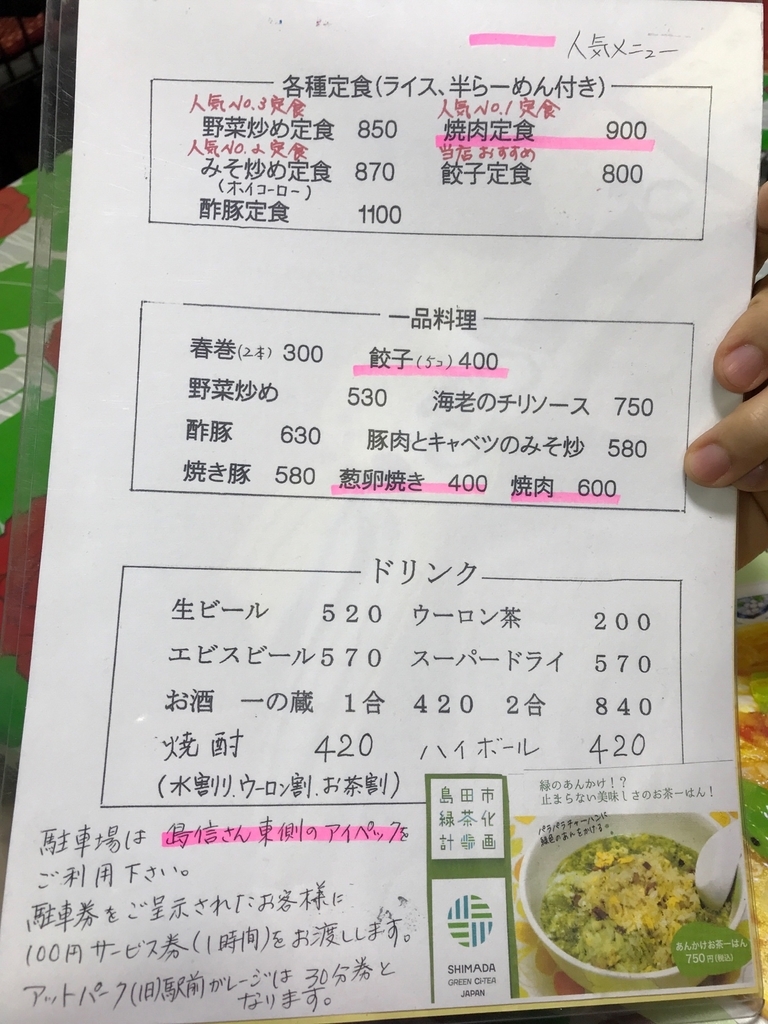 人気メニュー
各種定食(ライス、半らーめん付き)
人気No.3定食 人気No.1定食
野菜炒め定食 850 焼肉定食 900
人気No.2定食 当店おすすめ
みそ炒め定食 870 餃子定食 800
(ホイコーロー)
酢豚定食 1100
一品料理
春巻(2本) 300 餃子(5コ) 400
野菜炒め 530 海老のチリソース 750
酢豚 630 豚肉とキャベツのみそ炒 580
焼き豚 580 葱卵焼き 400 焼肉 600
ドリンク
生ビール 520 ウーロン茶 200
エビスビール 570 スーパードライ 570
お酒 一の蔵 1合 420 2合 840
焼酎 420 ハイボール 420
(水割り、ウーロン割、お茶割)
駐車場は島信さん東側のアイペックを
ご利用下さい。
駐車券をご呈示されたお客様に
100円サービス券(1時間)をお渡しします。
アットパーク(旧)駅前ガレージは30分券と
なります。
島田市
緑茶化
計画
SHIMADA
GREEN CI-TEA
JAPAN
緑のあんかけ!?
止まらない美味しさのお茶ーはん!
パラパラチャーハンに
緑色のあんをかける。
あんかけお茶ーはん
750円(税込)